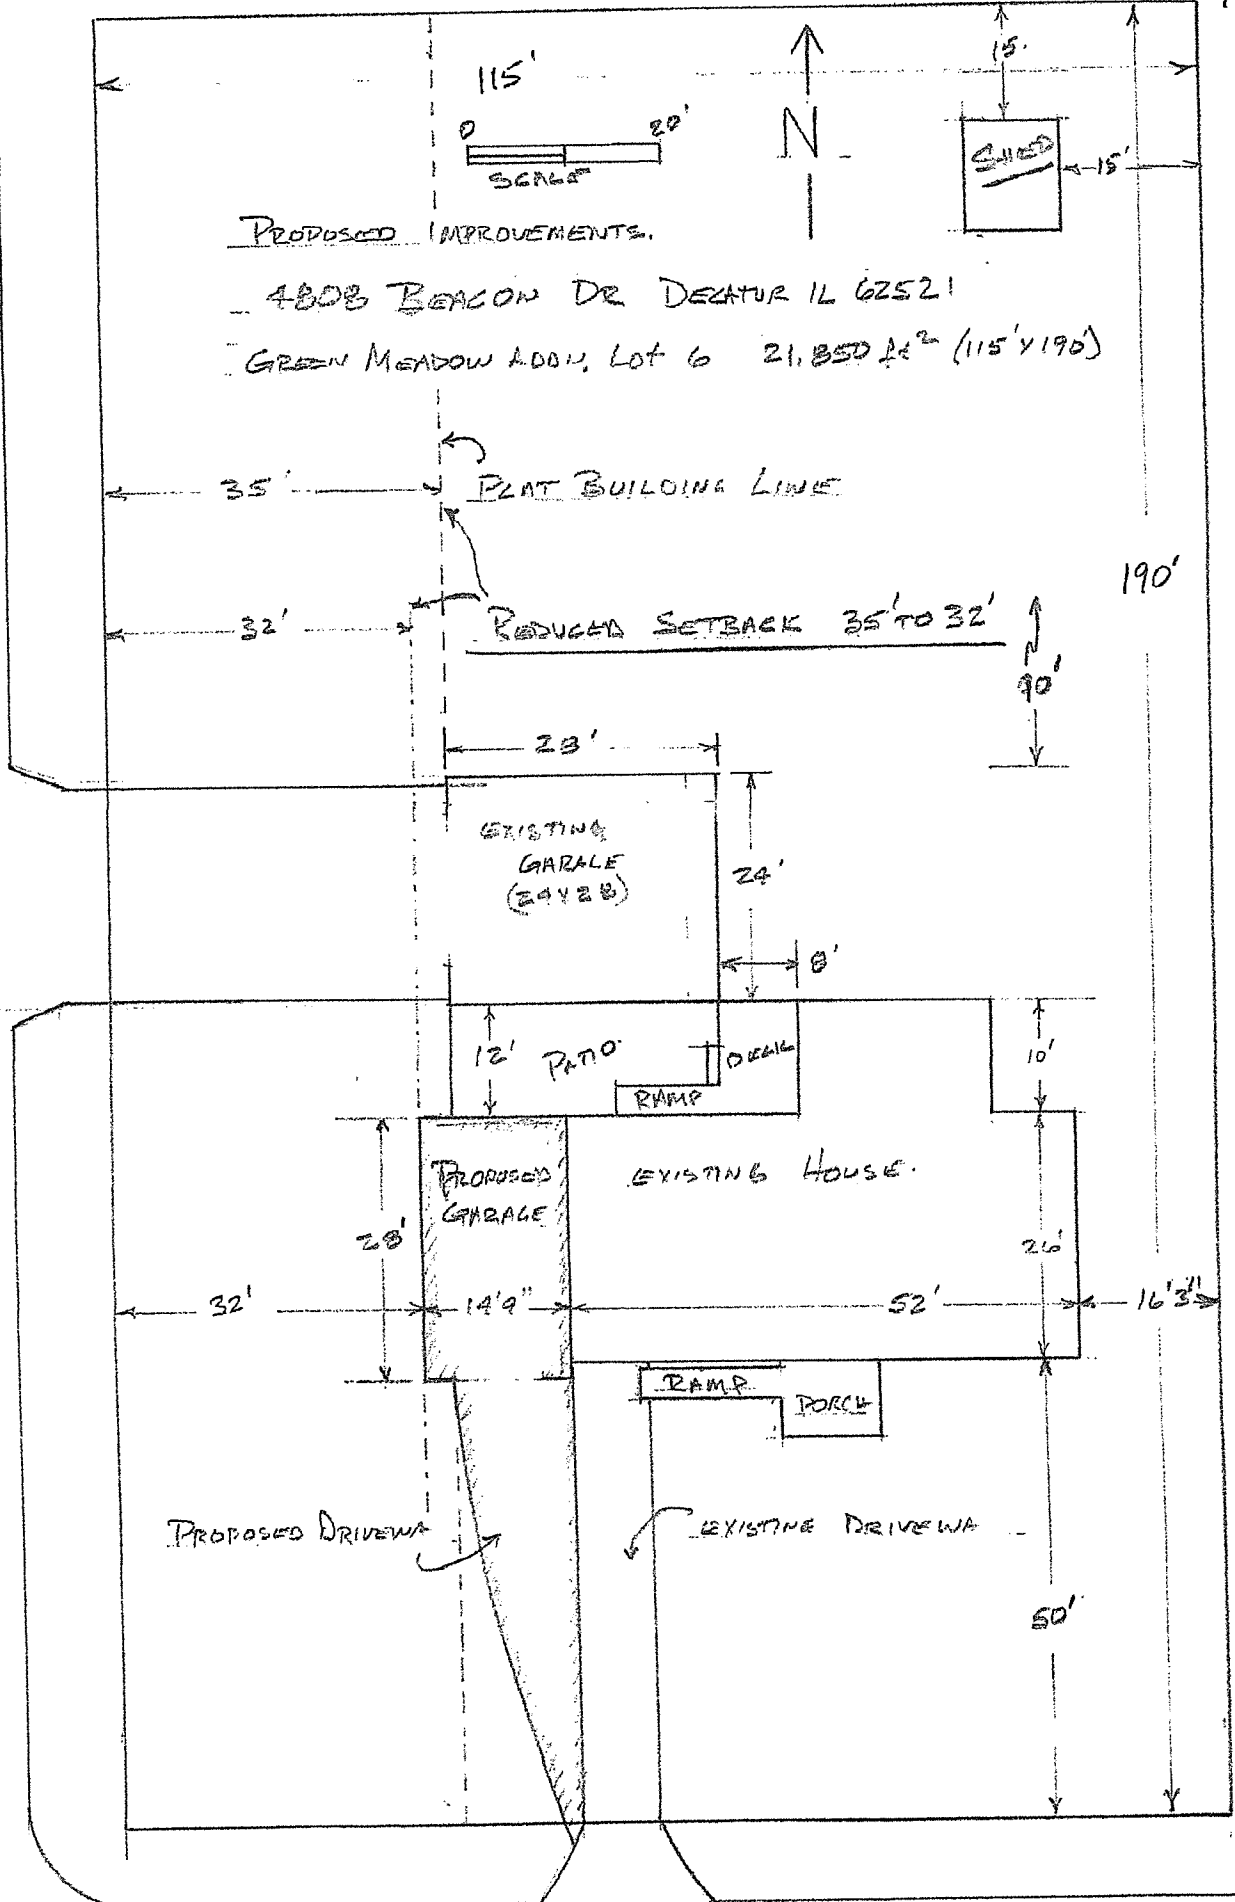 115'
15.
0 20'
SCALE
N
SHED
15'
PROPOSED IMPROVEMENTS.
4808 BEACON DR DECATUR IL 62521
GREEN MEADOW ADDN. LOT 6 21,850 ft² (115'X190')
35'
PLAT BUILDING LINE
190'
32'
REDUCED SETBACK 35' TO 32'
90'
28'
EXISTING
GARAGE
(24X28)
24'
8'
12'
PATIO.
DECK
10'
RAMP
PROPOSED
GARAGE
EXISTING HOUSE.
28'
26'
32'
14'9"
52'
16'3"
RAMP
PORCH
PROPOSED DRIVEWA
EXISTING DRIVEWA
50'